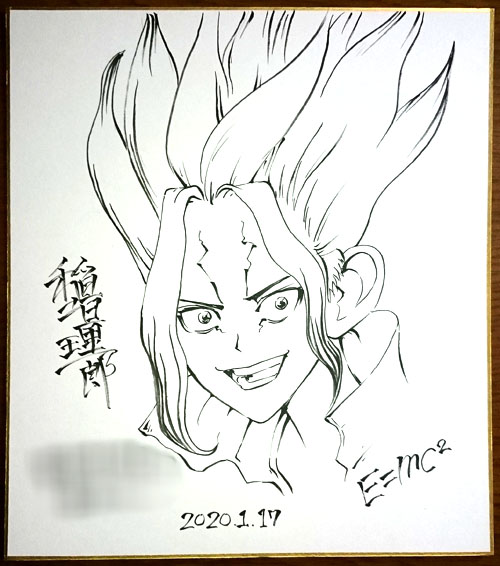 稲垣理一郎
E=MC²
2020.1.17